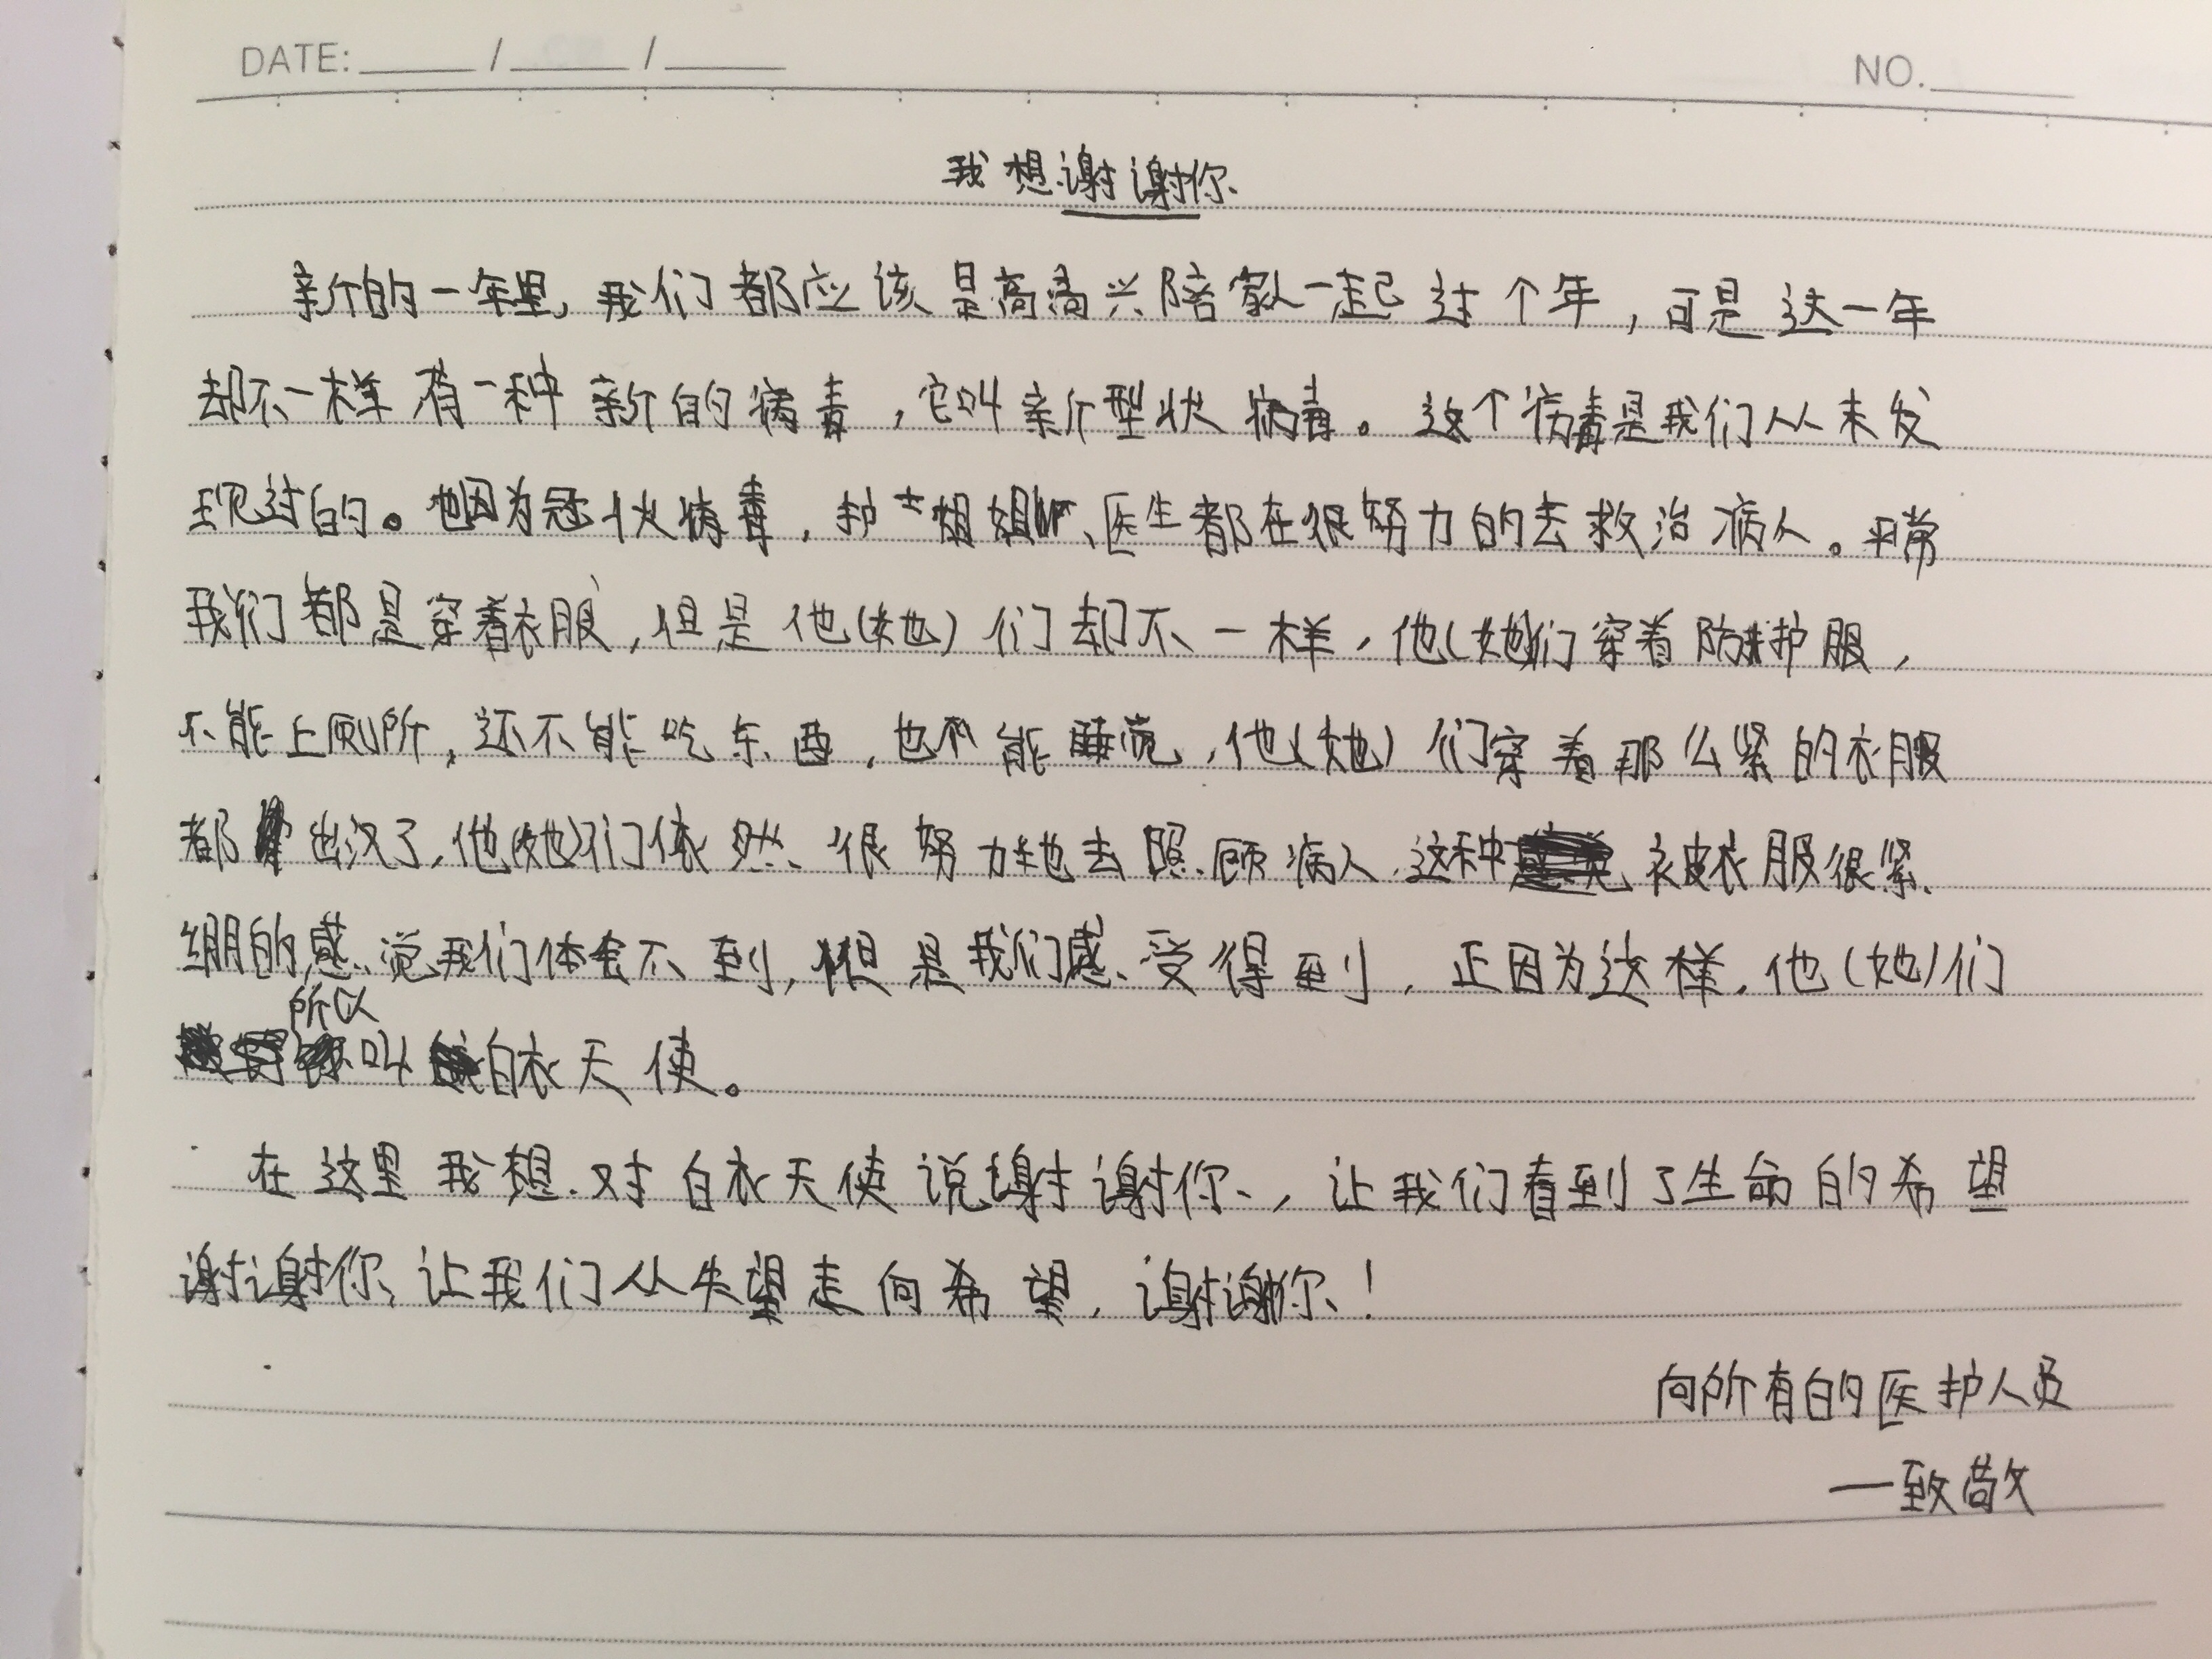 DATE: / /
NO.
我想谢谢你
新的一年里，我们都应该是高高兴陪家人一起过个年，可是这一年
却不一样有一种新的病毒，它叫新型状病毒。这个病毒是我们从未发
现过的。也因为冠状病毒，护士姐姐、医生都在很努力的去救治病人。平常
我们都是穿着衣服，但是他（她）们却不一样，他（她）们穿着防护服，
不能上厕所，还不能吃东西，也不能睡觉，他（她）们穿着那么紧的衣服
都出汗了，他（她）们依然很努力地去照顾病人，这种被衣服很紧
绷的感觉我们体会不到，但是我们感受得到，正因为这样，他（她）们
所以叫白衣天使。
在这里我想对白衣天使说谢谢你，让我们看到了生命的希望
谢谢你，让我们从失望走向希望，谢谢你！
向所有的医护人员
—致敬